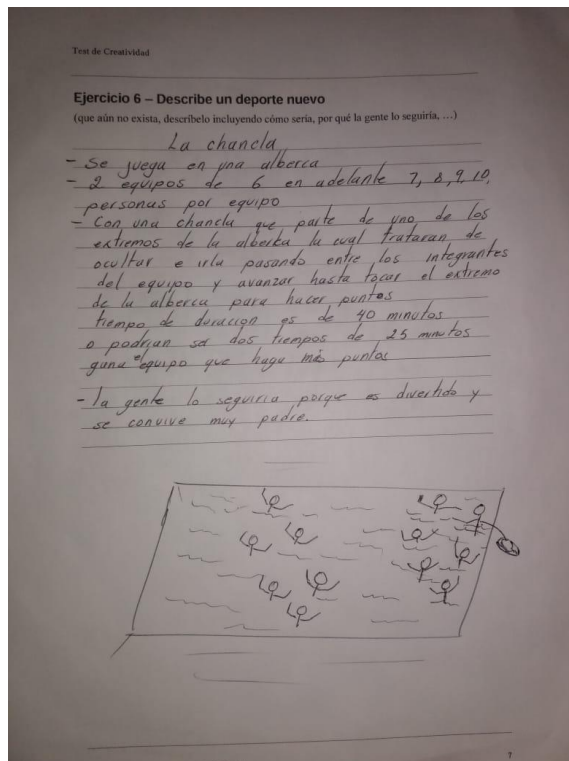 Test de Creatividad
Ejercicio 6 – Describe un deporte nuevo
(que aún no exista, descríbelo incluyendo cómo sería, por qué la gente lo seguiría, …)
La chancla
- Se juega en una alberca
- 2 equipos de 6 en adelante 7, 8, 9, 10,
personas por equipo
- Con una chancla que parte de uno de los
extremos de la alberka la cual trataran de
ocultar e irla pasando entre los integrantes
del equipo y avanzar hasta tocar el extremo
de la alberca para hacer puntos
tiempo de duración es de 40 minutos
o podrian ser dos tiempos de 25 minutos
gana el equipo que haga más puntos
- la gente lo seguiria porque es divertido y
se convive muy padre.
7